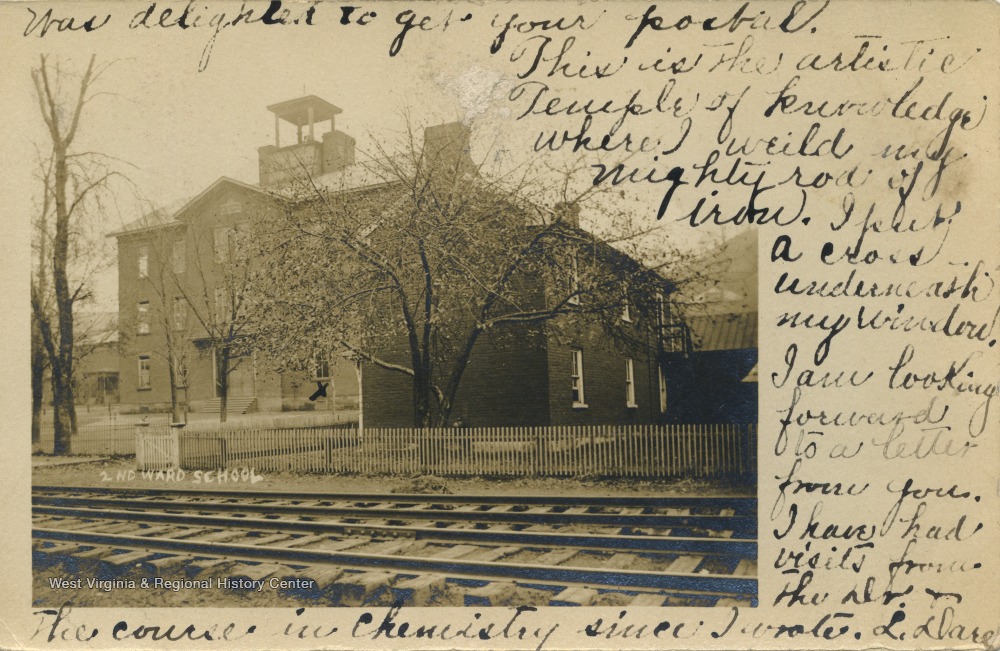 Was delighted to get your postal.
This is the artistic
Temple of knowledge
where I weild my
mighty rod of
iron. I put
a cross
underneath
my window.
I am looking
forward
to a letter
from you.
I have had
visits from
the Dr &
The course in Chemistry since I wrote. L. Dare
2ND WARD SCHOOL
West Virginia & Regional History Center